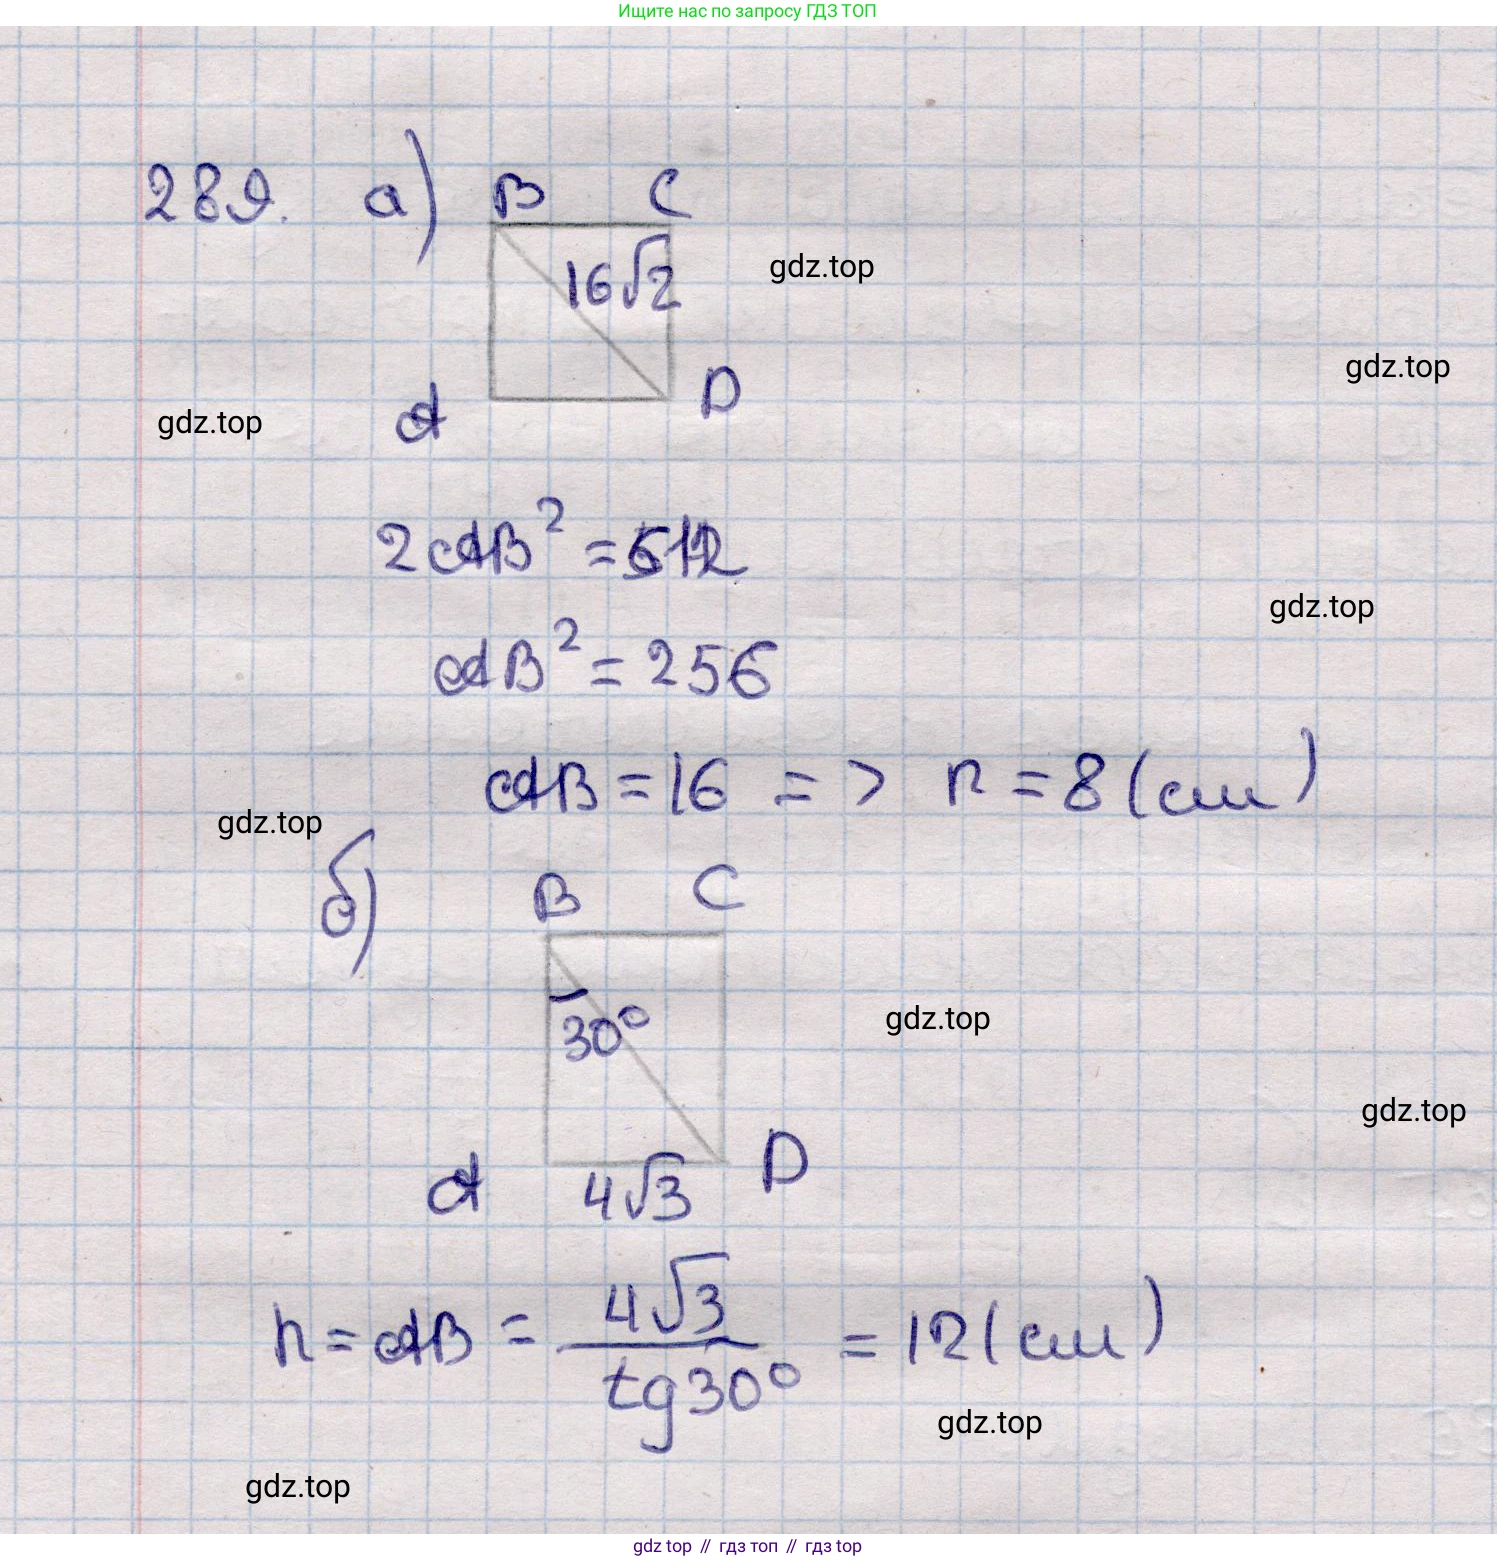 Ищите нас по запросу ГДЗ ТОП
289. а) B C
16√2
gdz.top
gdz.top
A D
gdz.top
2AB² = 512
gdz.top
AB² = 256
AB = 16 => r = 8 (см)
gdz.top
б) B C
30°
gdz.top
gdz.top
A 4√3 D
h = AB = 4√3 / tg 30° = 12 (см)
gdz.top
gdz.top
gdz top // гдз топ // гдз top